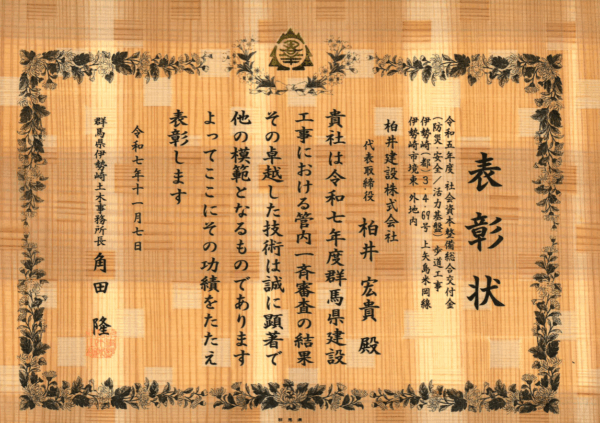 表彰状
令和五年度 社会資本整備総合交付金
(防災・安全/活力基盤)歩道工事
伊勢崎(都)3・4・69号 上矢島米岡線
伊勢崎市境東 外地内
柏井建設株式会社
代表取締役 柏井 宏貴 殿
貴社は令和七年度群馬県建設
工事における管内一斉審査の結果
その卓越した技術は誠に顕著で
他の模範となるものであります
よってここにその功績をたたえ
表彰します
令和七年十一月七日
群馬県伊勢崎土木事務所長 角田 隆